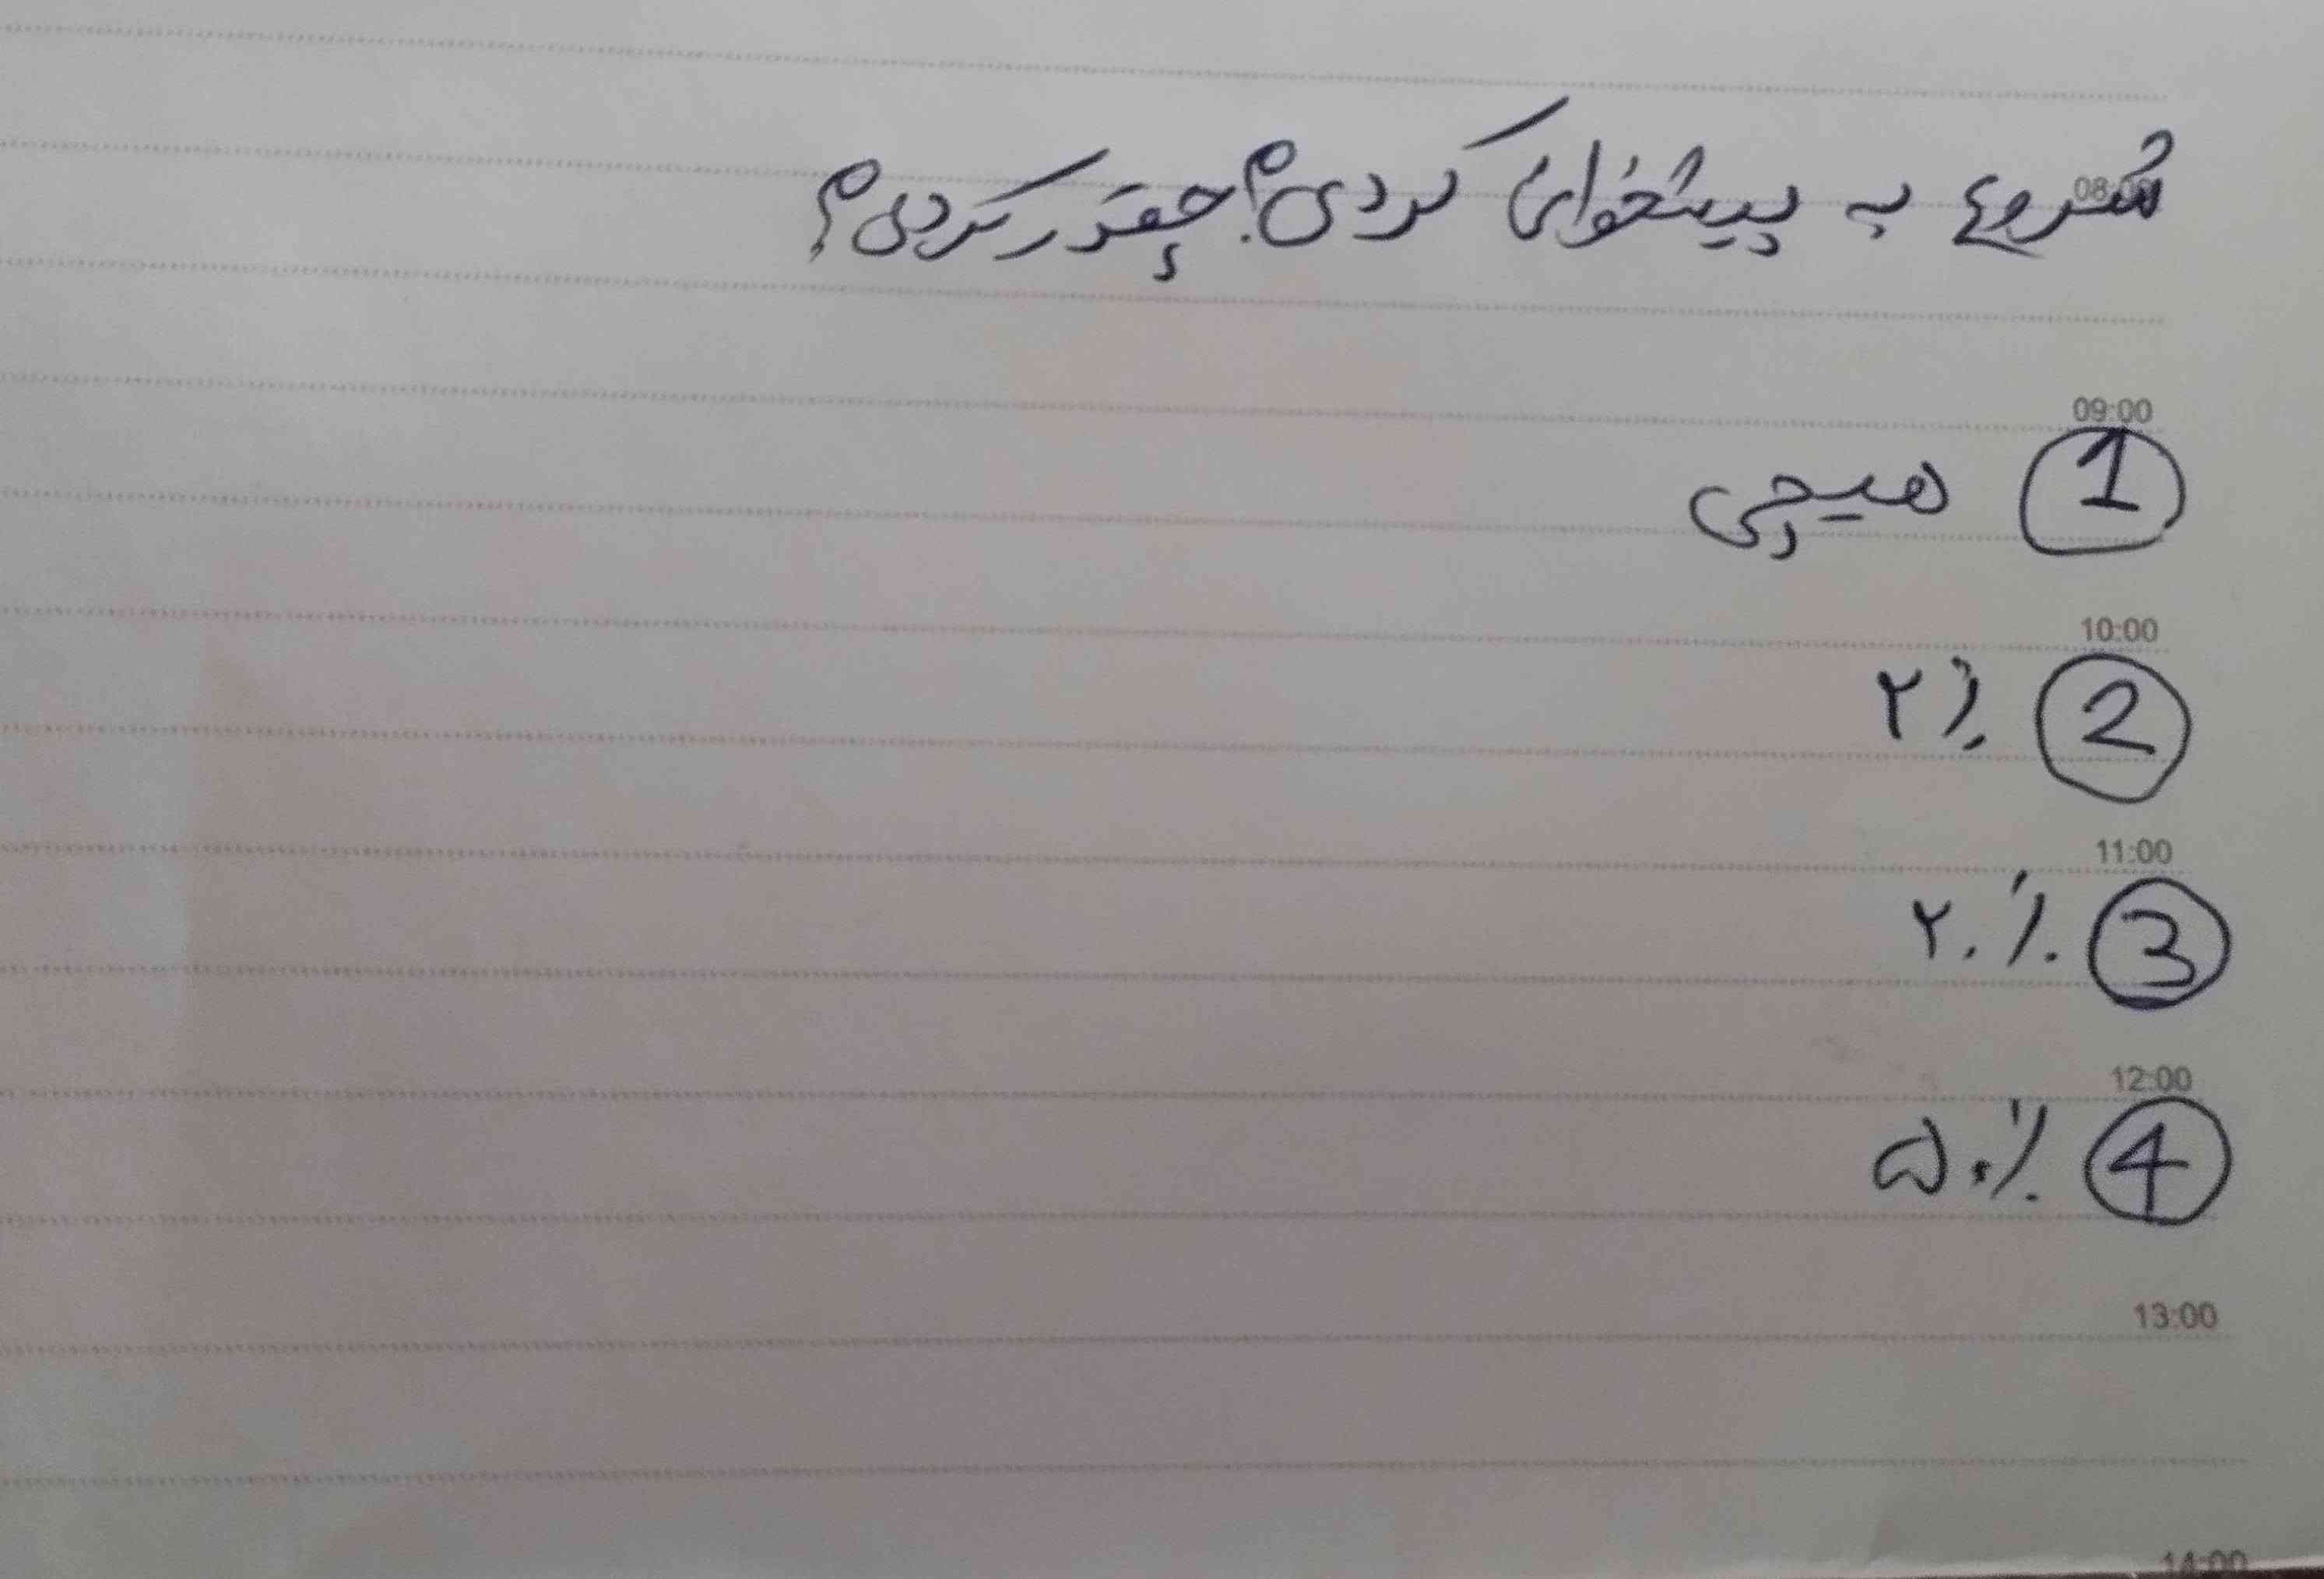 08:00
شروع به پیشخوانی کردی؟ چقدر کردی؟
09:00
1 هیچی
10:00
2 ٪۲
11:00
3 ٪۲۰
12:00
4 ٪۵۰
13:00
14:00